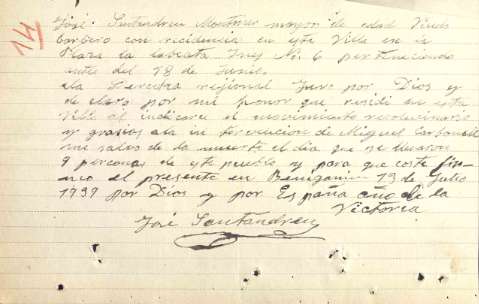 14
José Santandreu Montaner mayor de edad Viudo
barbero con recidencia en este Villa en la
Plaza la labrata Ines No. 6 perteneciendo
antes del 18 de Junio
ala Derecha regional Juro por Dios y
declaro por mi honor que residi en esta
Villa al indicarse el movimiento revolucionario
y grasias ala intervencion de Miguel Carbonell
me salve de la muerte el dia que se llevaron
9 personas de este pueblo y para que coste fir-
mo el presente en Benigánim 13 de Julio
1939 por Dios y por España año de la
Victoria
José Santandreu